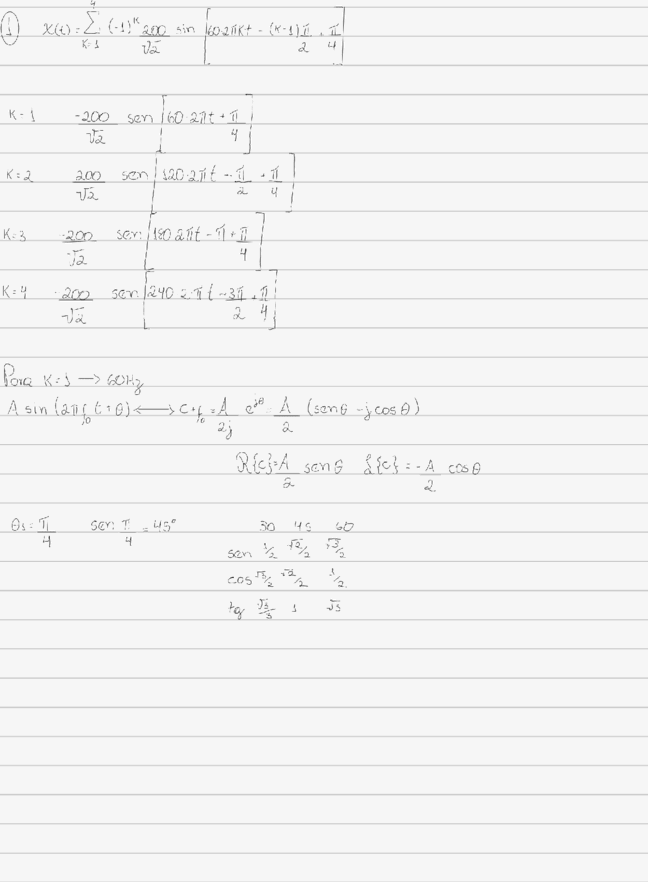 ① X(t) = 4 Σ K=1 (-1)^K 200/√2 sin [60·2πKt - (K-1)π/2 + π/4]
K=1 -200/√2 sen [60·2πt + π/4]
K=2 200/√2 sen [120·2πt - π/2 + π/4]
K=3 -200/√2 sen [180 2πt - π + π/4]
K=4 200/√2 sen [240 2·πt - 3π/2 + π/4]
Para K=1 → 60Hz
A sin (2πf₀t+θ) ⟷ C+f₀ = A/2j e^jθ = A/2 (senθ - jcosθ)
R{c} = A/2 senθ I{c} = -A/2 cosθ
θ1 = π/4 sen π/4 = 45° 30 45 60
sen 1/2 √2/2 √3/2
cos √3/2 √2/2 1/2
tg √3/3 1 √3